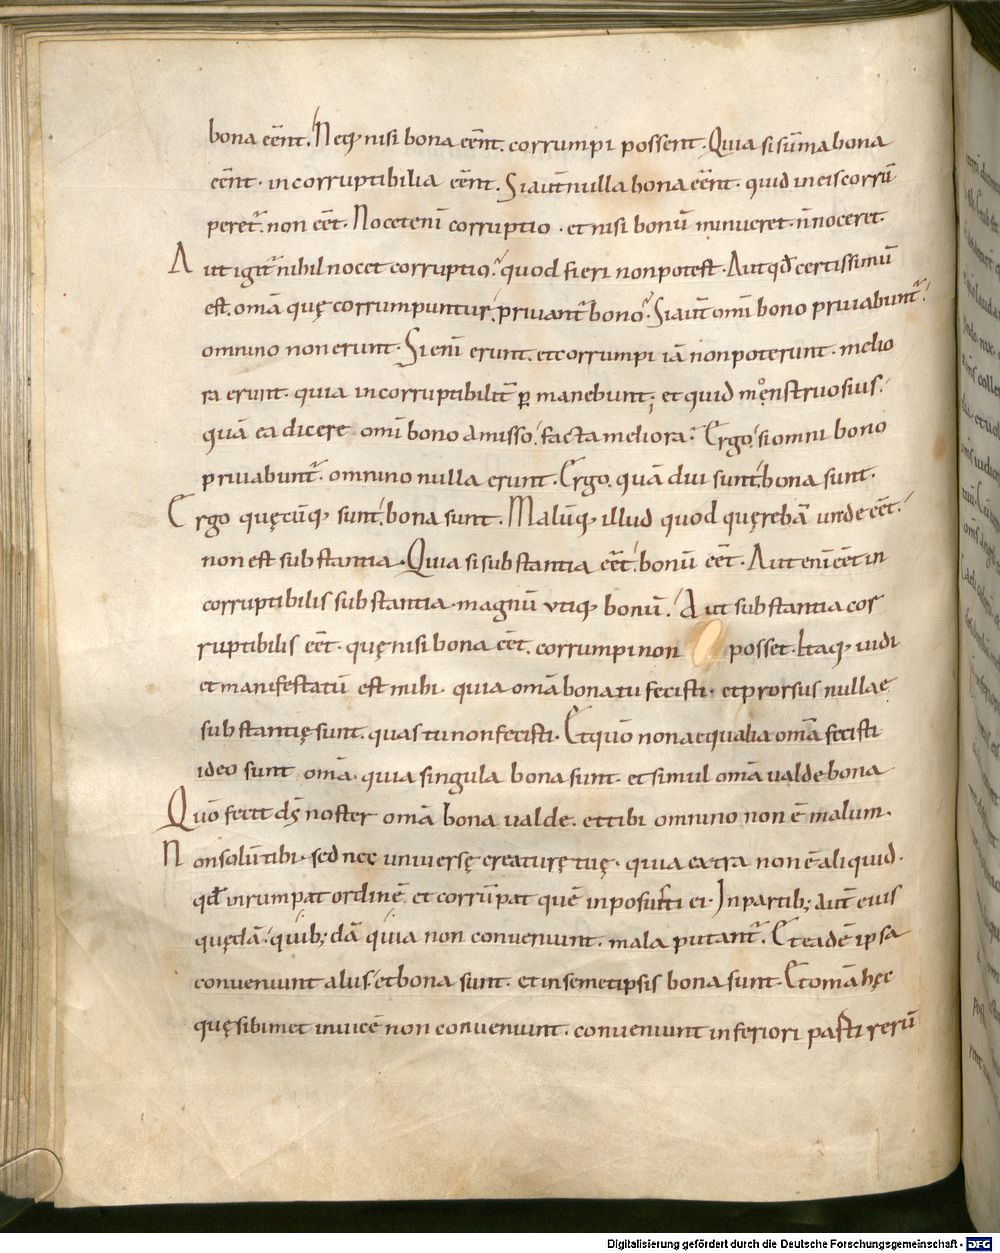 bona eēnt. Neq; nisi bona eēnt. corrumpi possent. Quia si sūma bona
eēnt. incorruptibilia eēnt. Si aut̄ nulla bona eēnt. quid in eis corrū
peret̄. non eēt. Nocet enī corruptio. et nisi bonū minueret. n̄ noceret.
Aut igit̄ nihil nocet corruptio. quod fieri non potest. Aut qđ certissimū
est. omā quę corrumpuntur. privant̄ bono. Si aut̄ omī bono privabunt̄.
omnino non erunt. Si enī erunt. et corrumpi iā non poterunt. melio
ra erunt. quia incorruptibilit̄ ꝑmanebunt; et quid monstruosius.
quā ea dicere omī bono amisso. facta meliora. Ergo. si omni bono
privabunt̄. omnino nulla erunt. Ergo. quā diu sunt. bona sunt.
Ergo quęcūq; sunt. bona sunt. Malūq; illud quod quęrebā unde eēt.
non est substantia. Quia si substantia eēt. bonū eēt. Aut enī eēt in
corruptibilis substantia. magnū utiq; bonū. Aut substantia cor
ruptibilis eēt. quę nisi bona eēt. corrumpi non posset. Itaq; vidi
et manifestatū est mihi. quia omā bona tu fecisti. et prorsus nullae
substantię sunt. quas tu non fecisti. Et quōn non aequalia omā fecisti
ideo sunt omā. quia singula bona sunt. et simul omā valde bona
Quōn fecit dš noster omā bona valde. et tibi omnino non ē malum.
Non solūm tibi. sed nec universę creaturę tuę. quia extra non ē aliquid.
qđ inrumpat ordinē. et corrūpat quē inposuisti ei. In partib; aut̄ eius
quędā. quib;dā quia non conveniunt. mala putant̄. Et eadē ipsa
conveniunt aliis. et bona sunt. et in semetipsis bona sunt. Et omā hęc
quę sibimet invicē non conveniunt. conveniunt inferiori parti rerū
Digitalisierung gefördert durch die Deutsche Forschungsgemeinschaft - DFG